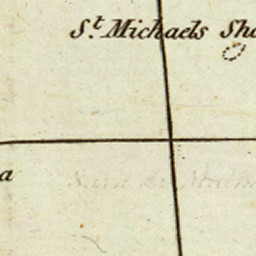 S.t Michaels Sho
a